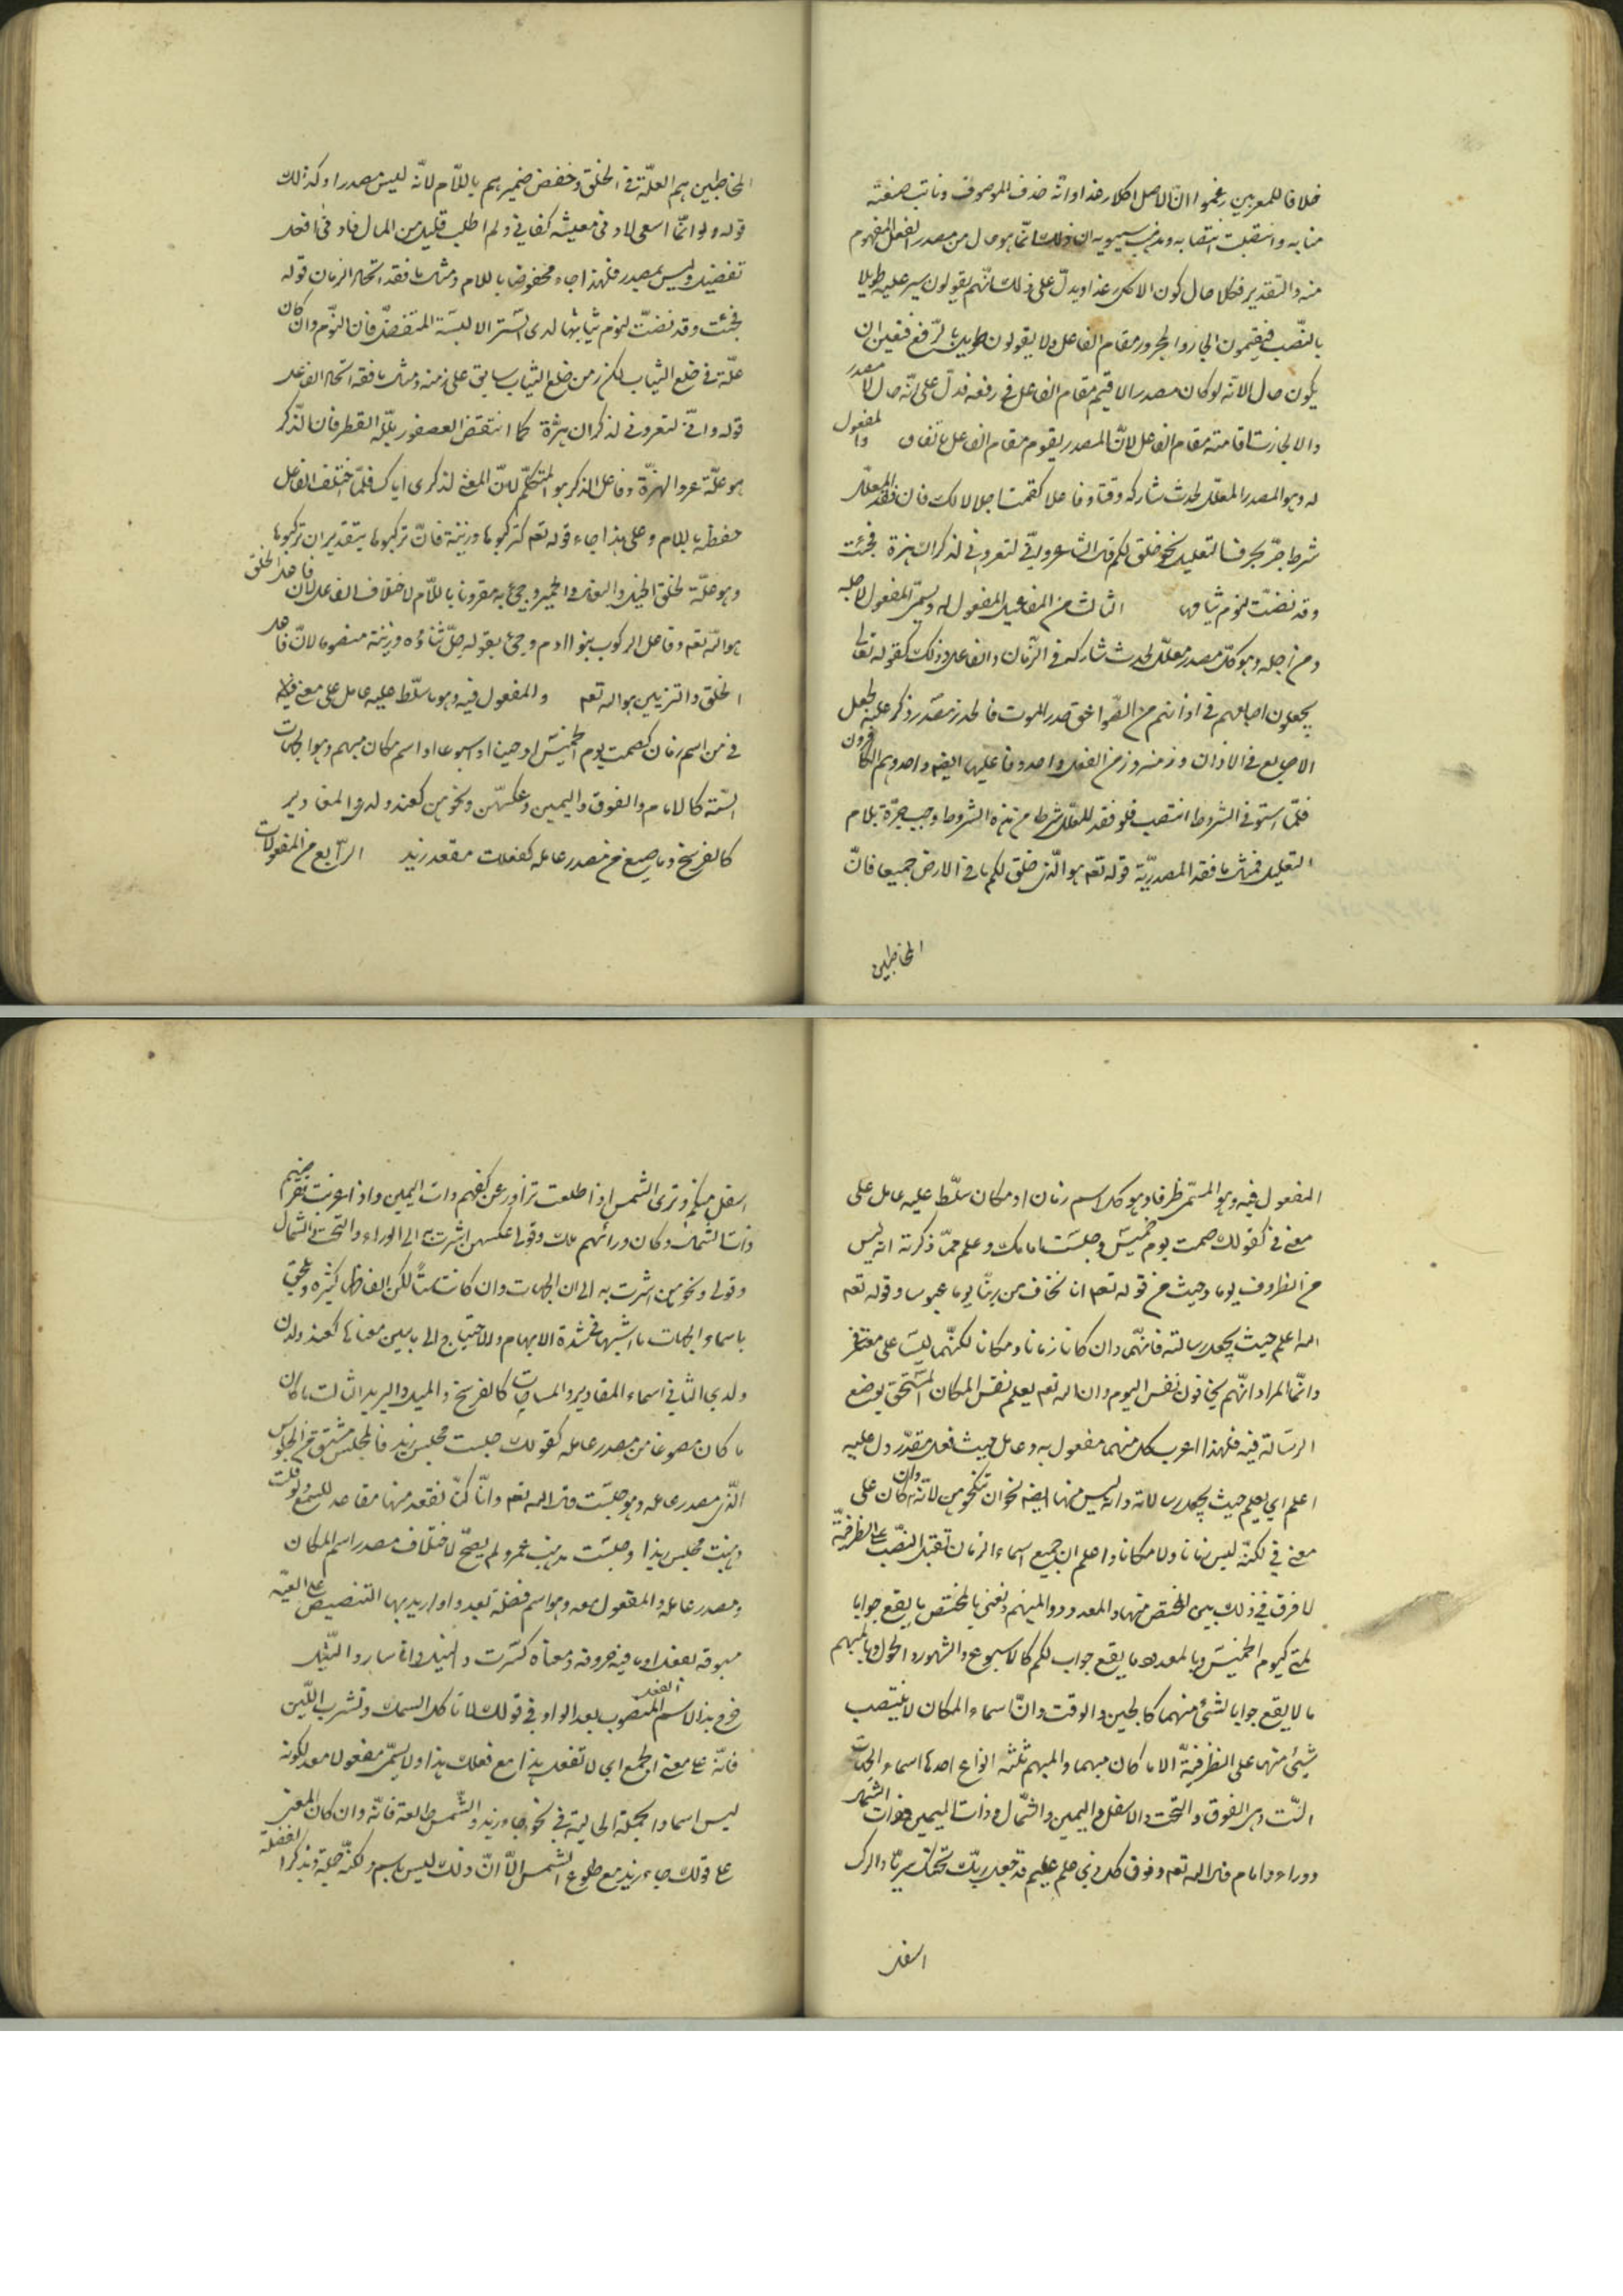 خلافا للمعربين زعموا ان الاصل اكلا رغدا وانّه حذف الموصوف ونابت صفته
منابه وانتصبت انتصابه ومذهب سيبويه ان ذلك انّما هو حال من مصدر الفعل المفهوم
منه والتقدير فكلا حال كون الاكل رغدا ويدلّ على ذلك انّهم يقولون سير عليه طويلا
بالنّصب فيقيمون الجار والمجرور مقام الفاعل ولا يقولون طويل بالرّفع فتعين ان
يكون حالا لانّه لو كان مصدرا لاقيم مقام الفاعل في رفعه فدلّ على انّه حال لا مصدر
والا لجازت اقامته مقام الفاعل لانّ المصدر يقوم مقام الفاعل باتّفاق والمفعول
له وهو المصدر المعلّل لحدث شاركه وقتا وفاعلا كقمت اجلالا لك فان فقد المعلّل
شرطا جرّ بحرف التعليل نحو خلق لكم قال الشاعر وانّي لتعروني لذكراك هزة فجئت
وقد نضّت لنوم ثيابها الثالث من المفاعيل المفعول له ويسمّى المفعول لاجله
ومن اجله وهو كلّ مصدر معلّل لحدث شاركه في الزّمان والفاعل وذلك كقوله تعالى
يجعلون اصابعهم في اذانهم من الصّواعق حذر الموت فالحذر مصدر ذكر علّة لجعل
الاصابع في الاذان وزمنه وزمن الفعل واحد وفاعلهما ايضا واحد وهم الكافرون
فلمّا استوفى الشروط انتصب فلو فقد المعلّل شرطا من هذه الشروط وجب جرّه بلام
التعليل فمثال ما فقد المصدريّة قوله تعم هو الّذي خلق لكم ما في الارض جميعا فانّ
المخاطبين
المخاطبين هم العلّة في الخلق وخفض ضميرهم باللّام لانّه ليس مصدرا وكذلك
قوله ولو انّما اسعى لادنى معيشه كفاني ولم اطلب قليل من المال فادنى افعل
تفضيل وليس بمصدر فلهذا جاء مخفوضا باللام ومثال ما فقد اتحاد الزمان قوله
فجئت وقد نضّت لنوم ثيابها لدى السّتر الا لبسة المتفضّل فان النّوم وان كان
علّة في خلع الثياب لكن زمن خلع الثياب سابق على زمنه ومثال ما فقد اتحاد الفاعل
قوله وانّي لتعروني لذكراك هزّة كما انتفض العصفور بلّله القطر فان الذّكر
هو علّة عرو الهزّة وفاعل الذكر هو المتكلّم لانّ المعنى لذكرى اياك فلمّا اختلف الفاعل
خفضه باللام وعلى هذا جاء قوله تعم لتركبوها وزينة فانّ تركبوها بتقدير ان تركبوها
وهو علّة لخلق الخيل والبغال والحمير وجئ به مقرونا باللّام لاختلاف الفاعل لان فاعل الخلق
هو الله تعم وفاعل الركوب بنوا ادم وجئ بقوله جلّ ثناؤه وزينة منصوبا لانّ فاعل
الخلق والتزيين هو الله تعم والمفعول فيه وهو ما سلّط عليه عامل على معنى فيه
في من اسم زمان كصمت يوم الخميس او حينا او اسبوعا او اسم مكان مبهم وهو الجهات
السّتة كالامام والفوق واليمين وعكسهنّ ونحوهن كعند ولدى والمقادير
كالفرسخ وما صيغ من مصدر عامله كقعدت مقعد زيد الرّابع من المفعولات
المفعول فيه وهو المسمّى ظرفا وهو كل اسم زمان او مكان سلّط عليه عامل على
معنى في كقولك صمت يوم خميس وجلست امامك وعلم ممّا ذكرته انه ليس
من الظروف يوما وحيث من قوله تعم انا نخاف من ربنّا يوما عبوسا وقوله تعم
الله اعلم حيث يجعل رسالته فانّهما وان كانا زمانا ومكانا لكنّهما ليسا على معنى في
وانّما المراد انّهم يخافون نفس اليوم وان الله تعم يعلم نفس المكان المستحقّ لوضع
الرسالة فيه فلهذا اعرب كل منهما مفعول به وعامل حيث فعل مقدّر دل عليه
اعلم اي يعلم حيث يجعل رسالاته وانه ليس منها ايضا نحو ان تنكحوهن لانّه وان كان على
معنى في لكنّه ليس زمانا ولا مكانا واعلم ان جميع اسماء الزمان تقبل النّصب على الظرفيّة
لا فرق في ذلك بين المختص منها والمعدود والمبهم ونعني بالمختص ما يقع جوابا
لمتى كيوم الخميس وبالمعدود ما يقع جوابا لكم كالاسبوع والشهور والحول وبالمبهم
ما لا يقع جوابا لشئ منهما كالحين والوقت وانّ اسماء المكان لا ينتصب
شيئ منها على الظرفيّة الا ما كان مبهما والمبهم ثلثة انواع احدها اسماء الجهات
السّت وهي الفوق والتحت والاسفل واليمين والشّمال وذات اليمين وذات الشّمال
ووراء وامام قال الله تعم وفوق كل ذي علم عليم قد جعل ربّك تحتك سريّا والركب
اسفل
اسفل منكم وترى الشمس اذا طلعت تزاور عن كهفهم ذات اليمين واذا غربت تقرضهم
ذات الشمال وكان ورائهم ملك وقولي عكسهن اشرت به الى الوراء والتحت والشمال
وقولي ونحوهن اشرت به الى ان الجهات وان كانت ستّا لكن الفاظها كثيره ويلحق
باسماء الجهات ما اشبهها في شدة الابهام والاحتياج الى ما يبين معناها كعند ولدى
ولدى الثاني اسماء المقادير والمساحات كالفرسخ والميل والبريد الثالث ما كان
ما كان مصوغا من مصدر عامله كقولك جلست مجلس زيد فالمجلس مشتق من الجلوس
الّذي مصدر عامله وهو جلست قال الله تعم وانّا كنّا نقعد منها مقاعد للسمع ولو قلت
ذهبت مجلس زيد او جلست مذهب عمرو لم يصحّ لاختلاف مصدر اسم المكان
ومصدر عامله والمفعول معه وهو اسم فضلة بعد واو اريد بها التنصيص على المعيّة
مسبوقة بفعل او ما فيه حروفه ومعناه كسرت والنيل وانا سائر والنّيل
خرج بذا الاسم الفعل المنصوب بعد الواو في قولك لا تاكل السمك وتشرب اللّبن
فانّه على معنى الجمع اي لا تفعل هذا مع فعلك هذا ولا يسمّى مفعولا معه لكونه
ليس اسما والجملة الحالية في نحو جاء زيد والشّمس طالعة فانّه وان كان المعنى
على قولك جاء زيد مع طلوع الشمس الّا انّ ذلك ليس باسم ولكنّه جملة وبذكر الفضلة